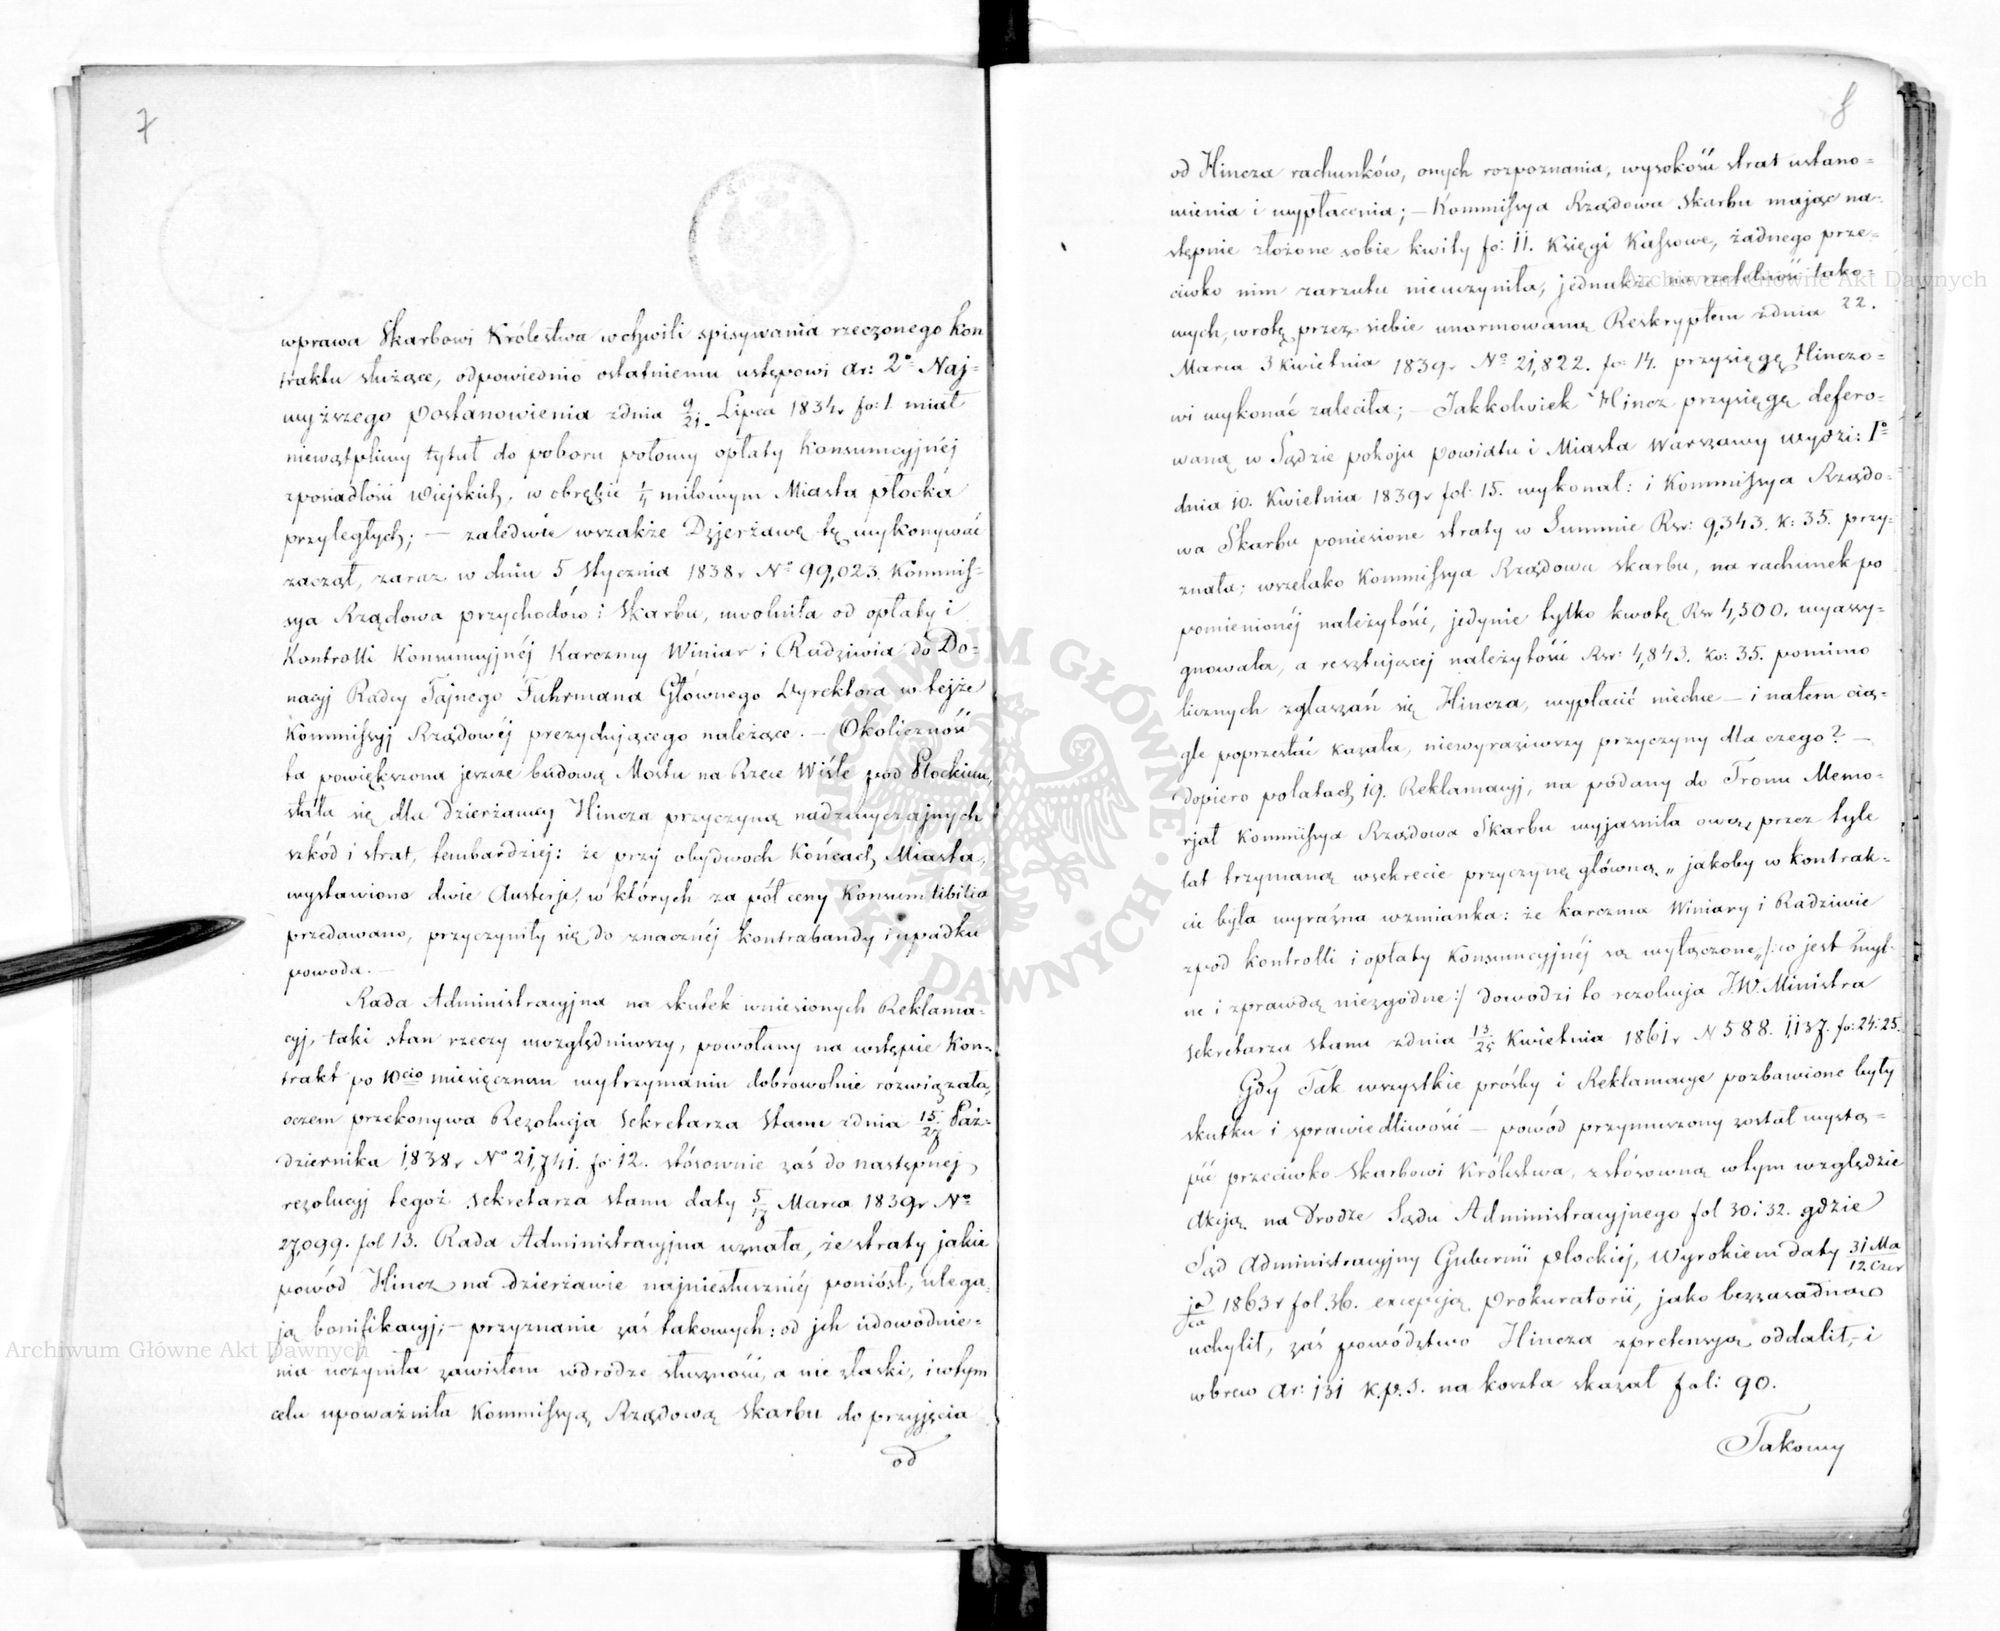 7
wprawa Skarbowi Królestwa w chwili spisywania rzeczonego kon
traktu służące, odpowiednio ostatniemu ustępowi ar: 2º Naj-
wyższego Postanowienia zdnia 9/21. Lipca 1834r fo: 1 miał
niewątpliwy tytuł do poboru połowy opłaty Konsumcyjnéj
zposiadłości wiejskich, w obrębie ¼ milowym Miasta płocka
przyległych; — zaledwie wszakże Dzierżawę tę wykonywać
zaczął, zaraz w dniu 5 Stycznia 1838r Nº 99,023. Kommis-
sya Rządowa przychodów i Skarbu, uwolniła od opłaty i
Kontrolli Konsumcyjnéj Karczmy Winiar i Radziwia do Do-
nacyj Radcy Tajnego Fuhrmana Głównego Dyrektora w tejże
Kommissyj Rządowéj prezydującego należące. — Okoliczność
ta powiększona jeszcze budową Mostu na Rzece Wiśle pod Płockiem,
stała się dla dzierżawcy Hincza przyczyną nadzwyczajnych
szkód i strat, tembardziej: że przy obydwoch Końcach Miasta,
wystawiono dwie Austerje, w których za pół ceny Konsumtibilia
przedawano, przyczyniły się do znacznéj kontrabandy i upadku
powoda. —
Rada Administracyjna na skutek wniesionych Reklama-
cyj, taki stan rzeczy uwzględniwszy, powołany na wstępie Kon-
trakt po 10cio miesięcznem wytrzymaniu dobrowolnie rozwiązała,
oczem przekonywa Rezolucja Sekretarza Stanu zdnia 15/27 Paź-
dziernika 1838r Nº 21,741. fo: 12. stósownie zaś do następnej
rezolucyj tegoż Sekretarza stanu daty 5/17 Marca 1839r Nº
27,099. fol 13. Rada Administracyjna uznała, że straty jakie
powód Hincz na dzierżawie najniesłuszniéj poniósł, ulega-
ją bonifikacyj; — przyznanie zaś takowych: od jch udowodnie-
nia uczyniła zawisłem wdrodze słuszności, a nie złaski, i wtym
celu upoważniła Kommissyą Rządową Skarbu do przyjęcia
od
8
od Hincza rachunków, onych rozpoznania, wysokości strat ustano-
wienia i wypłacenia; — Kommissya Rządowa Skarbu mając na-
stępnie złożone sobie kwity fo: 11. Księgi Kassowe, żadnego prze-
ciwko nim zarzutu nieuczyniła, jednakże na rzetelność tako-
wych, wrotę przez siebie unormowaną Reskryptem zdnia 22.
Marca 3 Kwietnia 1839r Nº 21,822. fo: 14. przysięgę Hinczo-
wi wykonać zaleciła; — Jakkolwiek Hincz przysięgę defero-
waną w Sądzie pokoju powiatu i Miasta Warszawy wydzi: Iº
dnia 10. Kwietnia 1839r fol: 15. wykonał: i Kommissya Rządo-
wa Skarbu poniesione straty w Summie Rsr: 9,343. k: 35. przy-
znała; wszelako Kommissya Rządowa skarbu, na rachunek po
pomienionéj należytości, jedynie tylko kwotę Rsr 4,500. wyassy-
gnowała, a resztującej należytości Rsr: 4,843. Ko: 35. pomimo
licznych zgłaszań się Hincza, wypłacić niechce — i natem cią-
gle poprzestać kazała, niewyraziwszy przyczyny dla czego? —
Dopiero polatach 19. Reklamacyj, na pódany do Tronu Memo-
rjał Kommissya Rządowa Skarbu wyjasniła ową, przez tyle
lat trzymaną wsekrecie przyczynę główną „ jakoby w kontrak-
cie była wyraźna wzmianka: że karczma Winiary i Radziwie
zpod kontrolli i opłaty Konsumcyjnéj są wyłączone „ /: co jest myl-
ne i zprawdą niezgodne :/ dowodzi to rezolucja J.W. Ministra
Sekretarza stanu zdnia 13/25 Kwietnia 1861r N 588. 1,137. fo: 24: 25.
Gdy Tak wszystkie prośby i Reklamacye pozbawione były
skutku i sprawiedliwość — powód przymuszony został wystą-
pić przeciwko Skarbowi Królestwa, zstósowną wtym względzie
Akcją na Drodze Sądu Administracyjnego fol 30 i 32. gdzie
Sąd Administracyjny Gubernii płockiej, Wyrokiem daty 31 Ma/12 Czer
ja/ca 1863r fol. 36. excepcją Prokuratorii, jako bezzasadną
uchylił, zaś powództwo Hincza zpretensją oddalił, i
wbrew Ar: 131 K.p.S. na koszta skazał fol: 90.
Takowy
Archiwum Główne Akt Dawnych
Archiwum Główne Akt Dawnych
ARCHIWUM GŁÓWNE AKT DAWNYCH